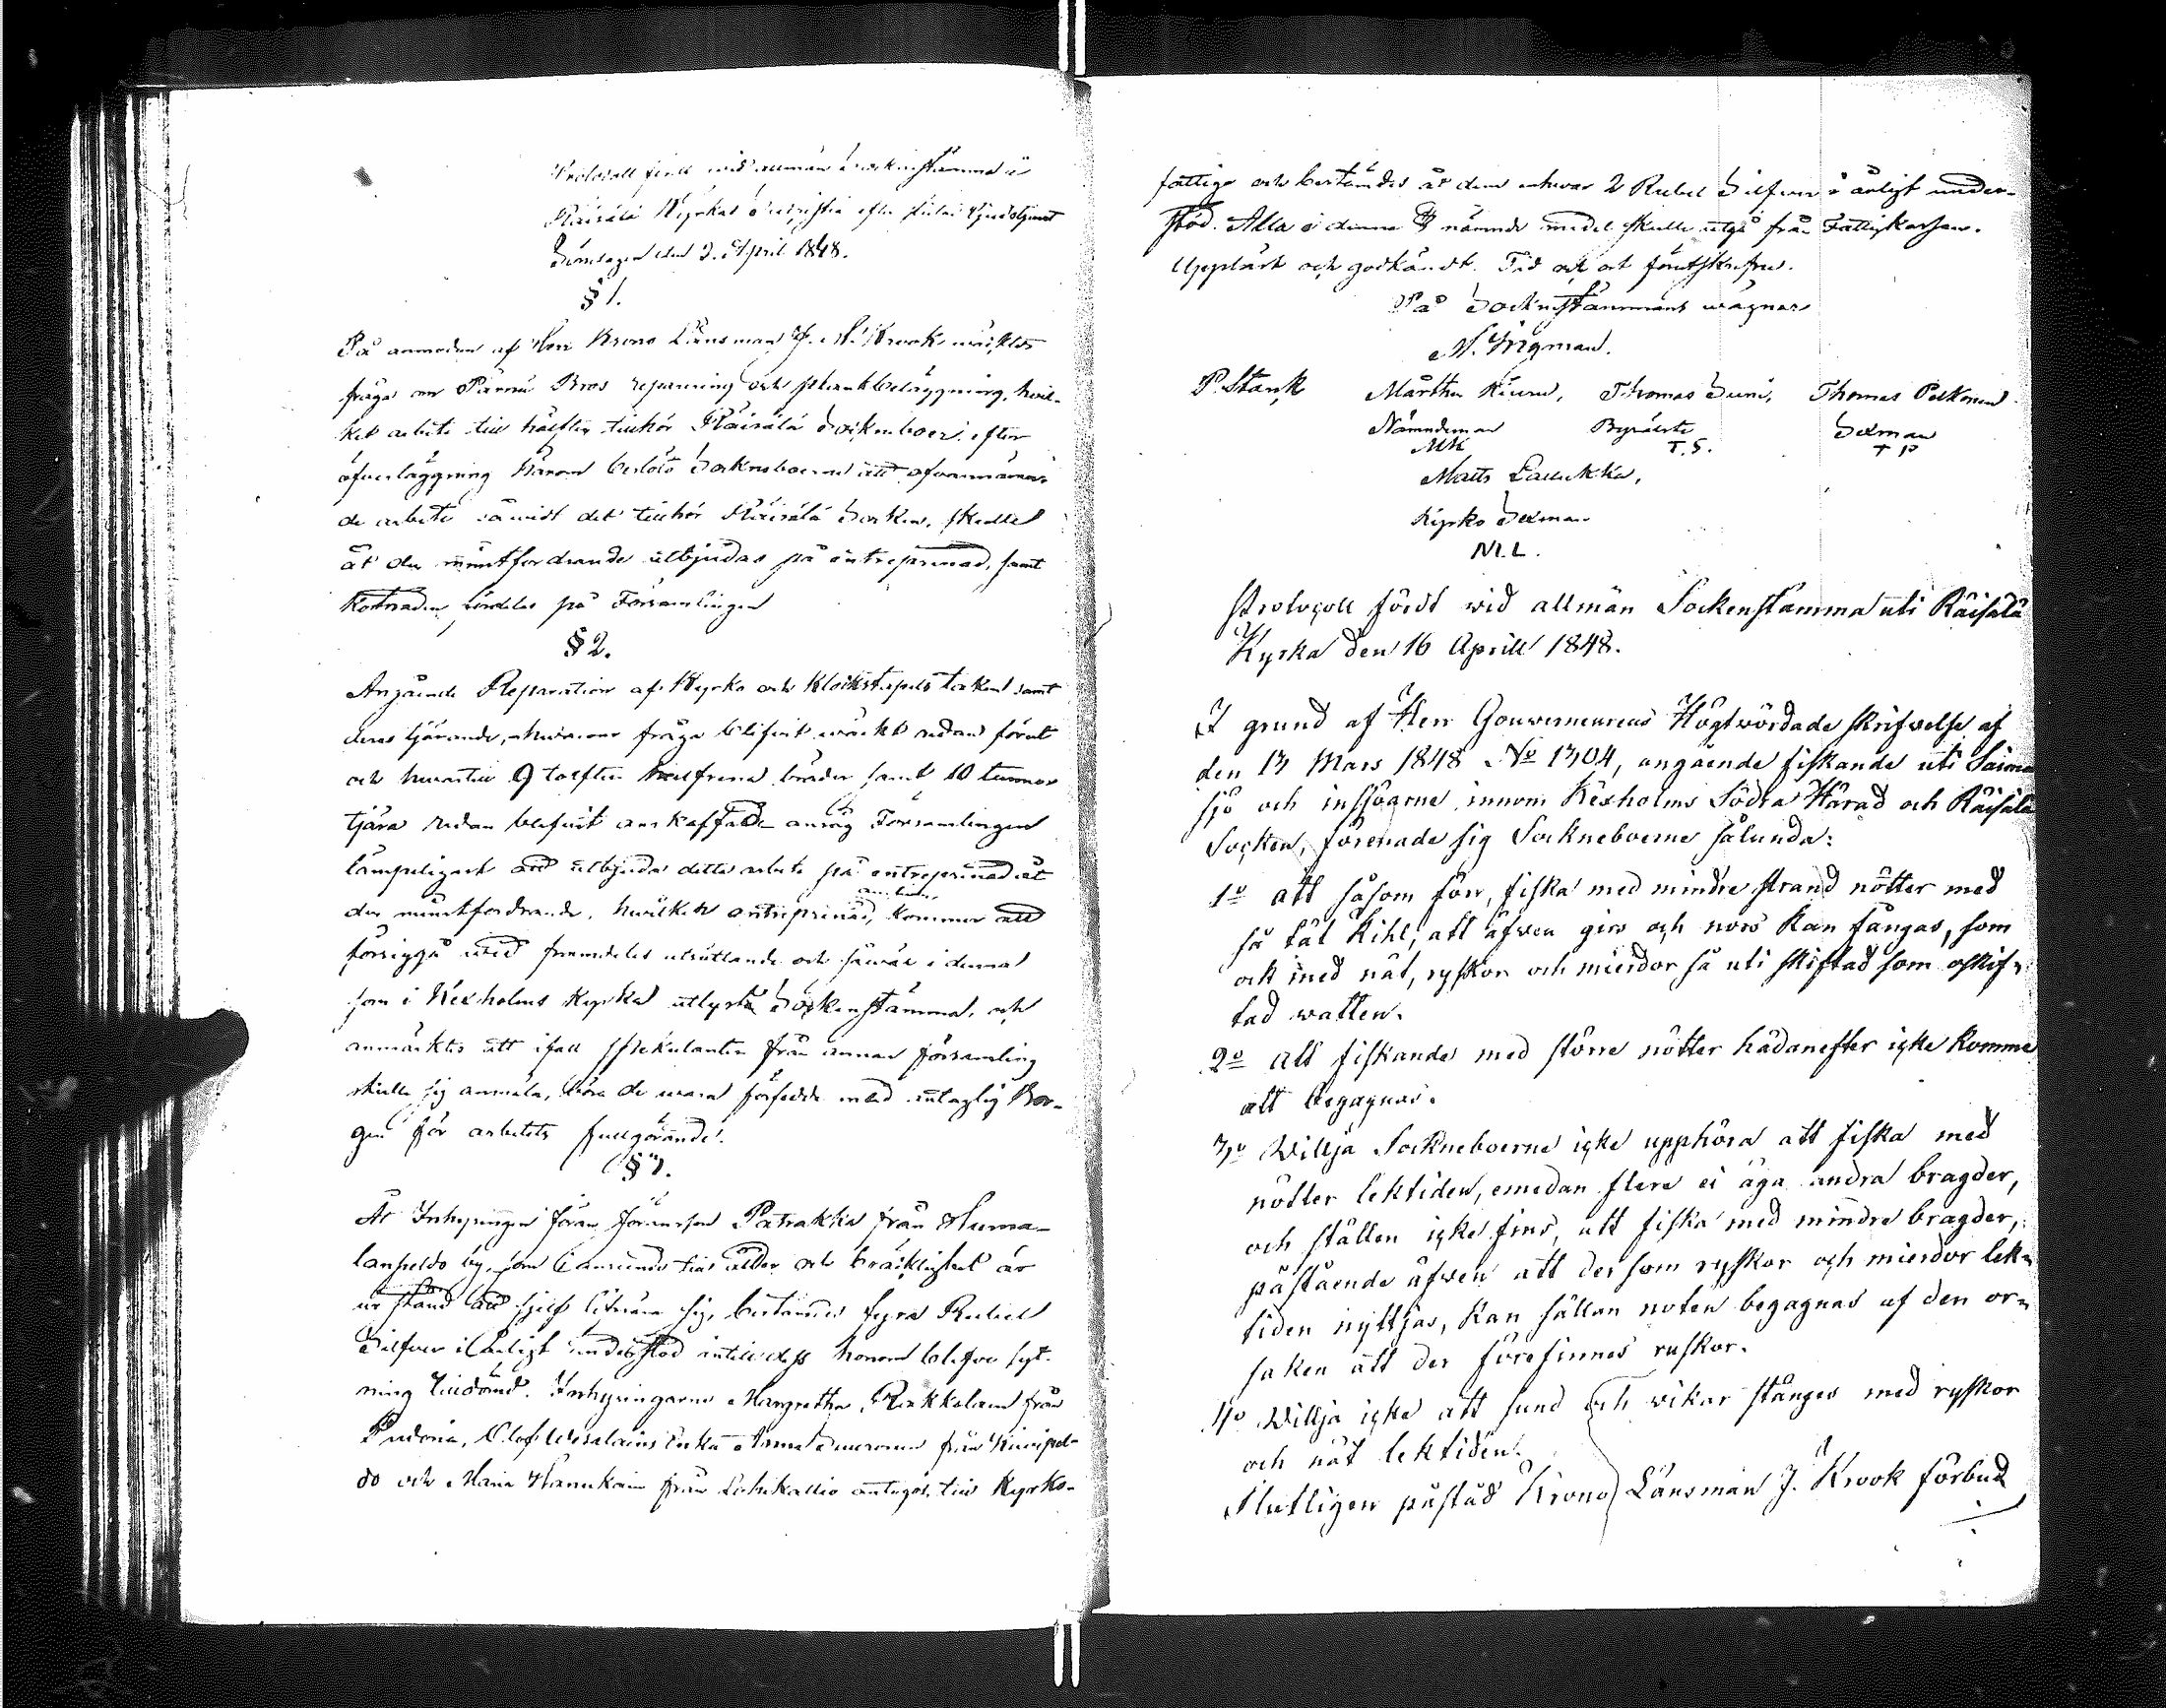 Protocoll fördt wid allmän Sockenstämma i
Räisälä Kyrkas Sacristia efter slutad Gudstjenst
Söndagen den 2. April 1848.
§ 1.
På anmodan af Herr Krono Länsman J. Krook wäcktes
fråga om Pärnä Bros reparering och plankbeläggning, hvil-
ket arbete till hälften tillhör Räisälä Sockneboer; efter
öfverläggning härom beslöto Sockneboerne att ofvannämn-
de arbete såvidt det tillhör Räisälä Socken, skulle
åt den minstfordrande utbjudas på entreprenad, samt
kostnaden fördelas på Församlingen
§ 2.
Angående Reparation af Kyrko och Klockstapels taken samt
deras tjärande, hvarom fråga blifvit wäckt redan förut
och hvartill 9 tolfter bräder samt 10 tunnor
tjära redan blifvit anskaffade ansåg Församlingen
lämpeligast att utbjuda detta arbete på entreprenad åt
den minstfordrande, hwilken entreprenad, kommer att
försiggå wid framdeles utsättande och såwäl i denna
som i Kexholms Kyrka utlyst Sockenstämma, och
anmärktes att ifall spekulanter från annan församling
skulle sig anmäla, böra de wara försedde med antaglig Bor-
gen för arbetets fullgörande.
§ 3.
Åt Inhysingen Göran Göransson Patrakka från Huma-
lanpeldo by, som i anseende till ålder och bräcklighet är
ur stånd att sjelf lifnära sig, bestämdes fyra Rubel
Silfver i årligt understöd intill dess honom blifver syt-
ning tilldömd. Inhysingarne Margretha Rokkolain från
Pudoria, Olof Wesalains Enka Anna från Kiwipel-
do och Maria Hannukain från antogos till Kyrko-
fattige och bestämdes åt dem enhvar 2 Rubel Silfver i årligt under-
stöd. Alla i denna § nämnde medel skulle utgå från Fattigkassan.
Uppläst och godkändt. Tid och ort förutskrifven.
På Sockenstämmans wägnar
N. Frigman.
P. Stark Mårthen Kiuru, Thomas Suni, Thomas Pulkonen
Nämndeman Byålste Sexman
MK T.S. TP
Matts Laukka,
Kyrko Sexman
M.L.
Protocoll fördt wid allmän Sockenstämma uti Räisälä
Kyrka den 16 Aprill 1848.
I grund af Herr Gouverneurens Högtwördade skrifvelse af
den 13 Mars 1848 No 1304, angående fiskande uti Saima
sjö och insjöarne innom Kexholms Södra Härad och Räisälä
Socken, förenade sig Sockneboerne sålunda:
1o att såsom förr, fiska med mindre strand nötter med
så tät Kihl, att äfwen girs och nors kan fångas, som
ock med nät, ryskor och mierdor så uti skiftad som oskif-
tad watten.
2o att fiskandes med större nötter hädanefter icke komme
att begagnas.
3o Willja Sockneboerne icke upphöra att fiska med
nötter lektiden, emedan flere ei äga andra bragder,
och ställen icke fins, att fiska med mindre bragder,
påstående äfwen att der som ryskor och mierdor lek-
tiden nyttjas, kan sällan noten begagnas af den or-
saken att der förefinnes ruskor.
4o Willja icke att sund och wikar stänges med ryskor
och nät lektiden.
Slutligen påstod Krono Länsman J. Krook förbud